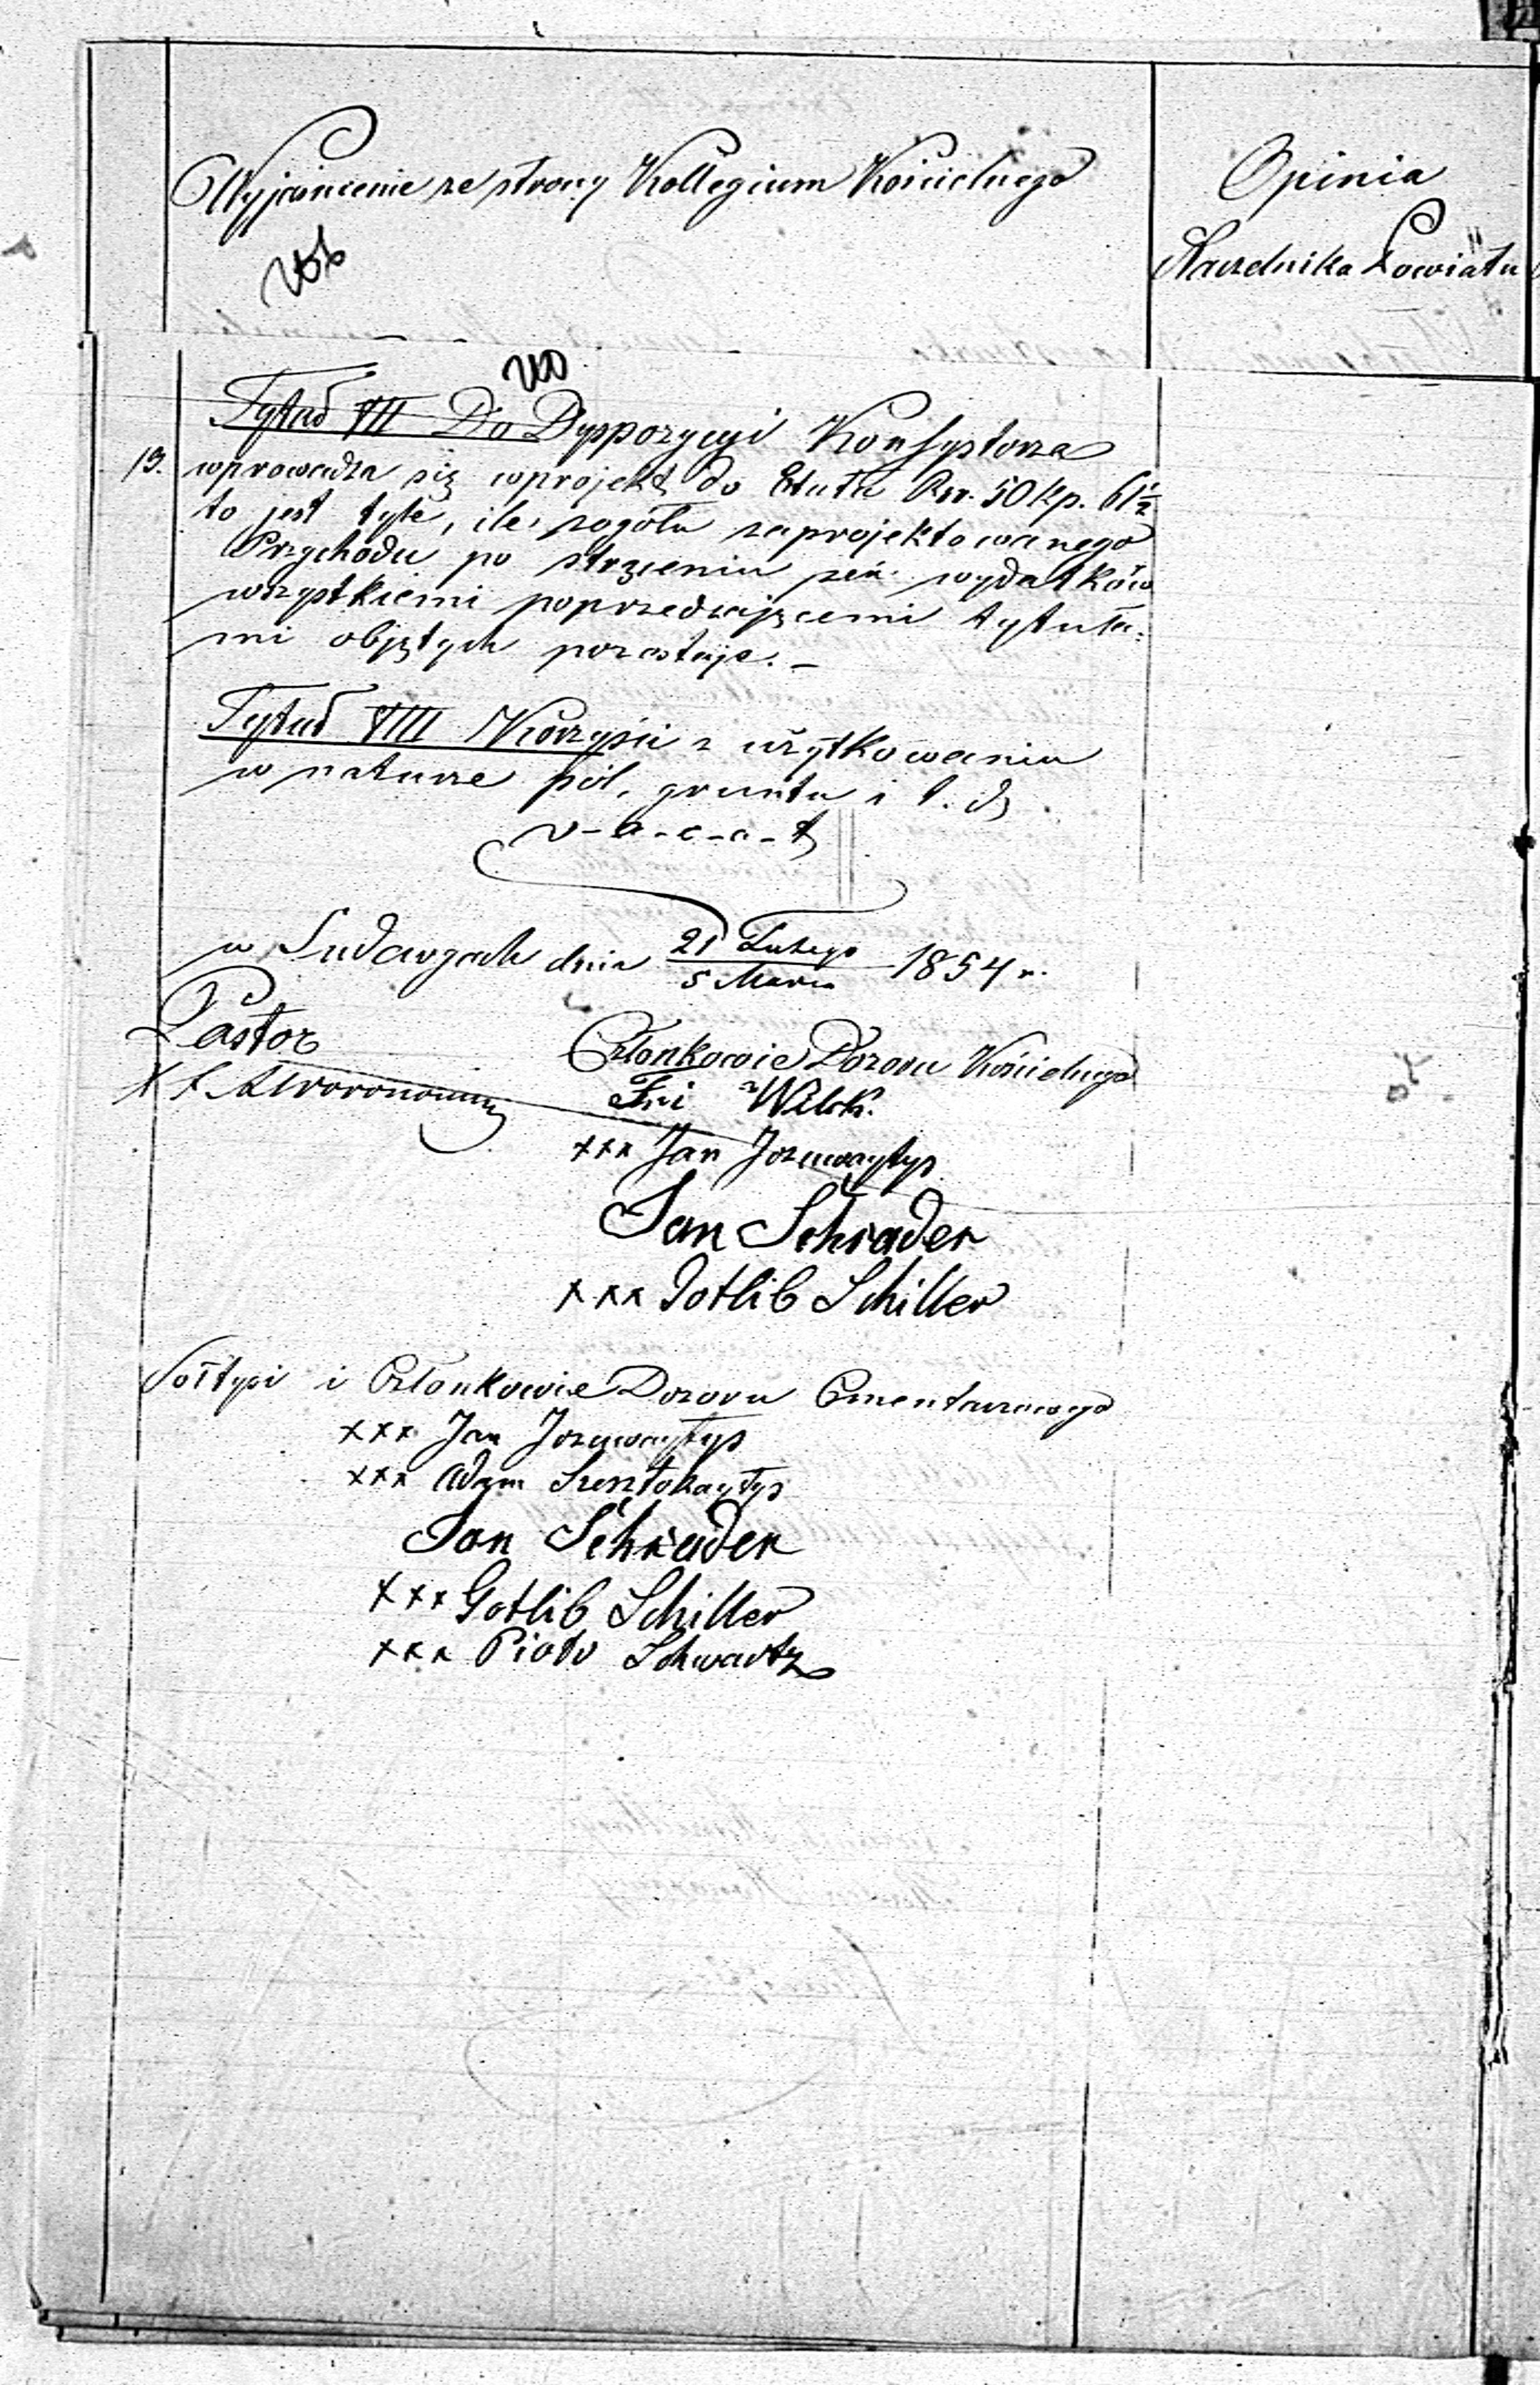 Wyjaśnienie ze strony Kollegium Kościelnego
Opinia
Naczelnika Powiatu
Tytuł VII Do Dyspozycyi Konsystorza
13. wprowadza się w projekt do Etatu Rsr. 50 kp. 61½
to jest tyle, ile z ogółu zaprojektowanego
Przychodu po strąceniu zeń wydatków
wszystkiemi poprzedzającemi tytuła=
mi objętych pozostaje. –
Tytuł VIII Korzyści z użytkowania
w naturze pól, gruntu i t. d.
v-a-c-a-t
w Sudargach dnia 21 Lutego / 5 Marca 1854 r.
Pastor
Członkowie Dozoru Kościelnego
Fri Wilck.
xxx Jan Jozuwaytys
Jan Schrader
xxx Gotlib Schiller
Sołtysi i Członkowie Dozoru Cmentarzowego
xxx Jan Jozuwaytys
xxx Adam
Jan Schrader
xxx Gotlib Schiller
xxx Piotr Schwartz